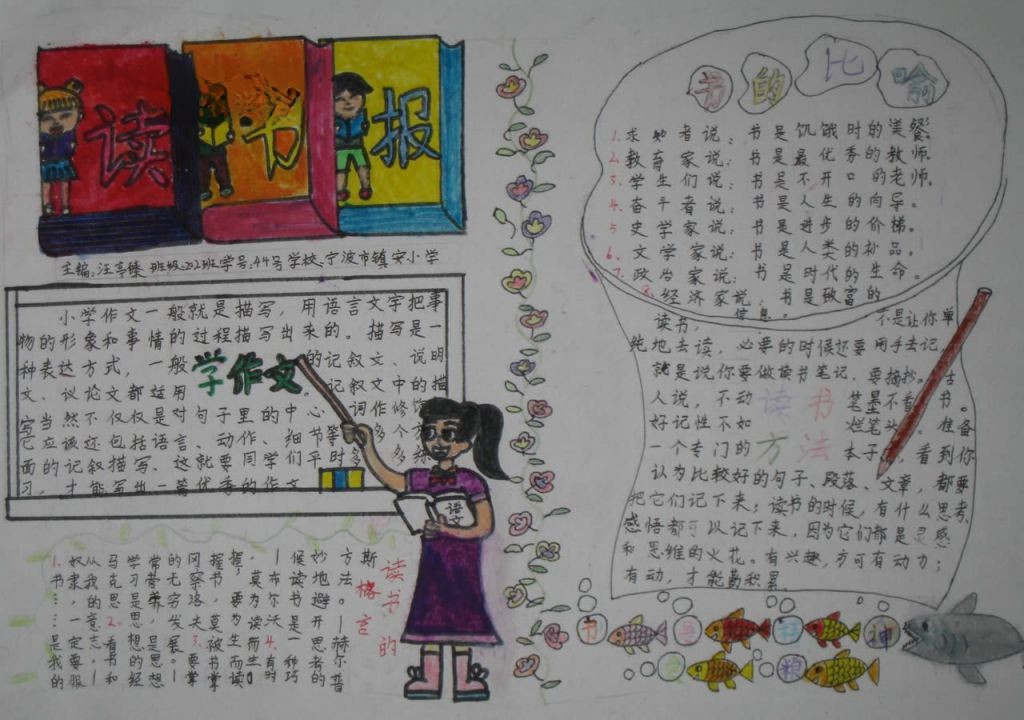 读书报
主编:汪亭臻 班级:202班 学号:44号 学校:宁波市镇安小学
小学作文一般就是描写,用语言文字把事
物的形象和事情的过程描写出来的。描写是一
种表达方式,一般 的记叙文、说明
文、议论文都运用 。记叙文中的描
写当然不仅仅是对句子里的中心 词作修饰
它应该还包括语言、动作、细节等 多个方
面的记叙描写、这就要同学们平时多 多练
习,才能写出一篇优秀的作文
学作文
语文
读书的
格言
1.奴隶,……一定要
书……是我的意志。——
马克思 2.看书和
学习是思想的经
常营养,是思想
的无穷发展。——
冈察洛夫 3.要掌
握书,莫被书掌
握;要为生而读,
莫为读而生。
——布尔沃 4.有时
候读书是一种巧
妙地避开思考的
方法。——赫尔普
斯
书的比喻
1.求知者说:书是饥饿时的美餐
2.教育家说:书是最优秀的教师.
3.学生们说:书是不开口的老师。
4.奋斗者说:书是人生的向导。
5 史学家说:书是进步的价梯。
6.文学家说:书是人类的补品。
7.政治家说:书是时代的生命。
8.经济家说:书是破富的
信息。
读书, 不是让你单
纯地去读,必要的时候还要用手去记,
就是说你要做读书笔记,要摘抄。古
人说,不动 笔墨不看 书。
好记性不如 烂笔头。准备
一个专门的 本子,看到你
认为比较好的句子、段落、文章,都要
把它们记下来;读书的时候,有什么思考、
感悟都可以记下来,因为它们都是灵感
和思维的火花。有兴趣,方可有动力;
有动,才能勤积累
读书
方法
书 是 精 神
粮